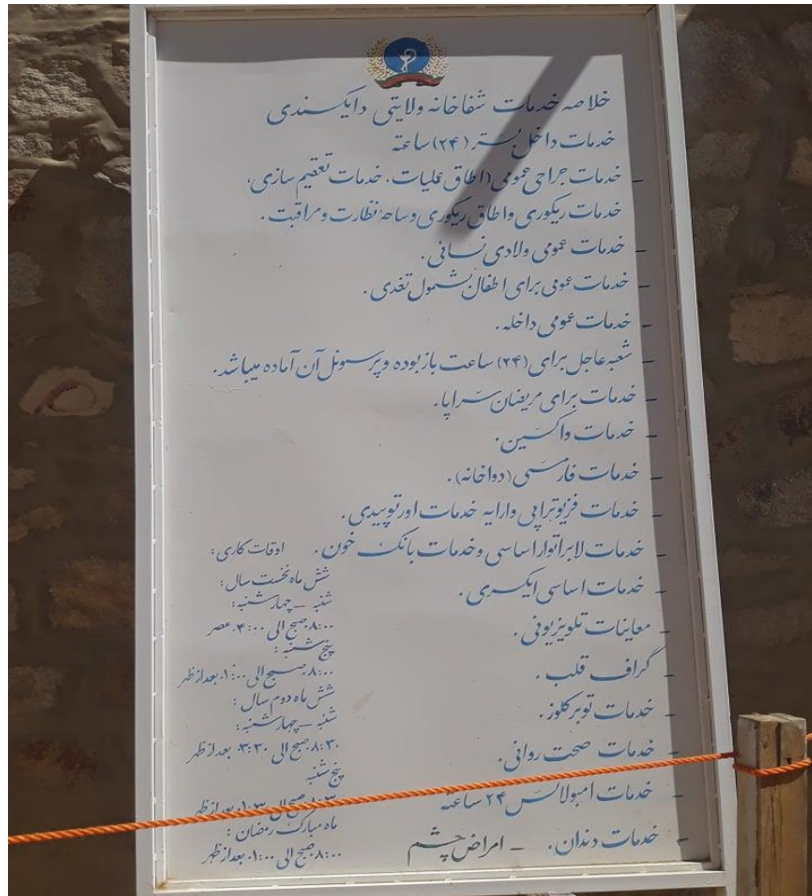 خلاصه خدمات شفاخانه ولایتی دایکندی
خدمات داخل بستر (۲۴) ساعته
_ خدمات جراحی عمومی (اطاق عملیات، خدمات تعقیم سازی،
خدمات ریکوری واطاق ریکوری وساحه نظارت ومراقبت.
_ خدمات عمومی ولادی نسائی.
_ خدمات عمومی برای اطفال بشمول تغذی.
_ خدمات عمومی داخله.
_ شعبه عاجل برای (۲۴) ساعت باز بوده و پرسونل آن آماده میباشد.
_ خدمات برای مریضان سراپا.
_ خدمات واکسین.
_ خدمات فارمسی (دواخانه).
_ خدمات فزیوتراپی وارایه خدمات اورتوپیدی.
_ خدمات لابراتوار اساسی وخدمات بانک خون.
_ خدمات اساسی ایکسری.
_ معاینات تلویزیونی.
_ گراف قلب.
_ خدمات توبرکلوز.
_ خدمات صحت روانی.
_ خدمات امبولانس ۲۴ ساعته
_ خدمات دندان. _ امراض چشم
اوقات کاری:
شش ماه نخست سال:
شنبه _ چهارشنبه:
۸:۰۰ صبح الی ۴:۰۰ عصر
پنج شنبه:
۸:۰۰ صبح الی ۱:۰۰ بعدازظهر
شش ماه دوم سال:
شنبه _ چهارشنبه:
۸:۳۰ صبح الی ۳:۳۰ بعدازظهر
پنج شنبه
صبح الی ۱:۳۰ بعدازظهر
ماه مبارک رمضان:
۸:۰۰ صبح الی ۱:۰۰ بعدازظهر